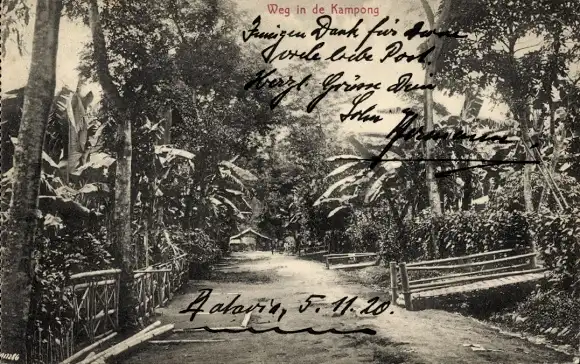 Weg in de Kampong
Innigen Dank für deine
viele liebe Post.
Herzl. Grüsse Dein
Sohn Hermann
Batavia, 5.11.20.